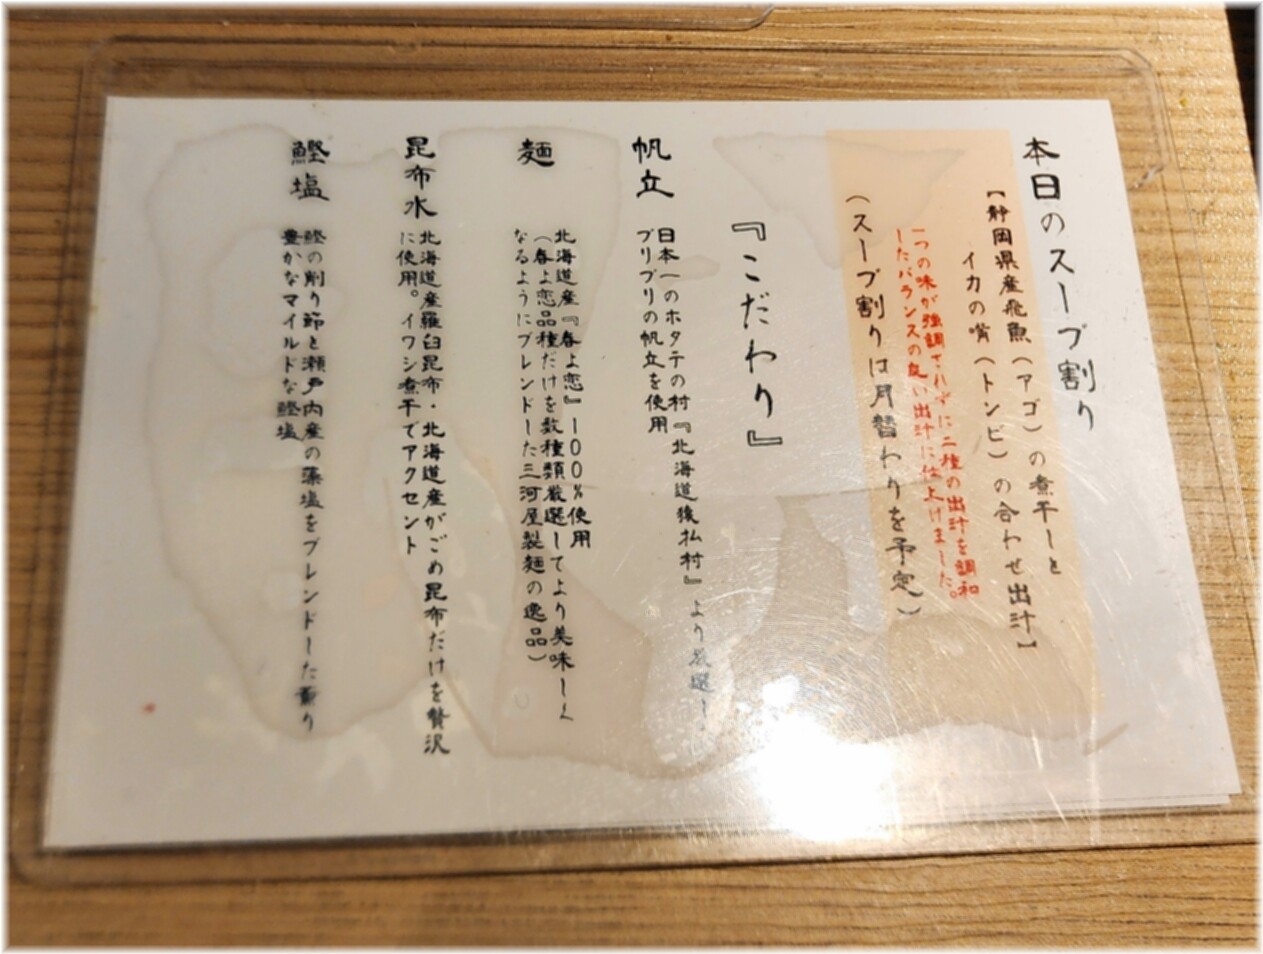 本日のスープ割り
【静岡県産飛魚(アゴ)の煮干しと
イカの嘴(トンビ)の合わせ出汁】
一つの味が強調せずに二種の出汁を調和
したバランスの良い出汁に仕上げました。
(スープ割りは月替わりを予定)
『こだわり』
帆立
日本一のホタテの村『北海道猿払村』より厳選し、
プリプリの帆立を使用
麺
北海道産『春よ恋』100%使用
(春よ恋品種だけを数種類厳選してより美味しく
なるようにブレンドした三河屋製麺の逸品)
昆布水
北海道産羅臼昆布・北海道産がごめ昆布だけを贅沢
に使用。イワシ煮干でアクセント
鰹塩
鰹の削り節と瀬戸内産の藻塩をブレンドした薫り
豊かなマイルドな鰹塩